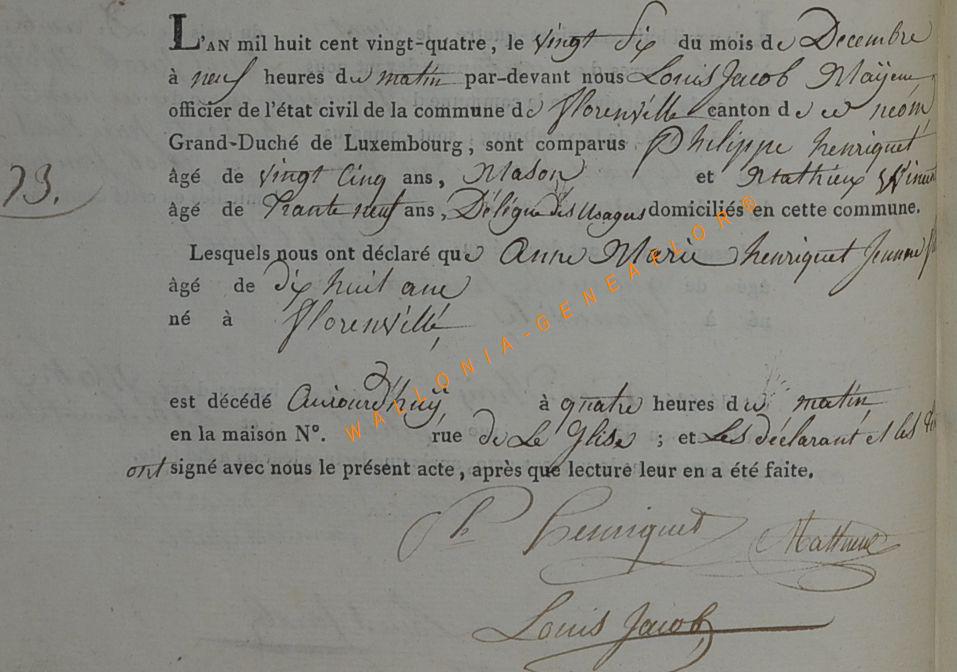 L'AN mil huit cent vingt-quatre, le vingt Six du mois de Decembre
à neuf heures du matin par-devant nous Louis Jacob Mayeur
officier de l'état civil de la commune de florenville canton de
Grand-Duché de Luxembourg, sont comparus Philippe henriquet
73.
âgé de vingt Cinq ans, Mason et Mathieux
âgé de trante neuf ans, Délégué des Usages domiciliés en cette commune.
Lesquels nous ont déclaré que Anne Marie henriquet Jeunne
âgé de dix huit ans
né à florenville
est décédé Aujourd'huy à quatre heures du matin
en la maison N°. rue de Le Glise ; et Les déclarant et les
ont signé avec nous le présent acte, après que lecture leur en a été faite.
Ph henriquet Mathieux
Louis Jacob
WALLONIA-GENEAFLOR®